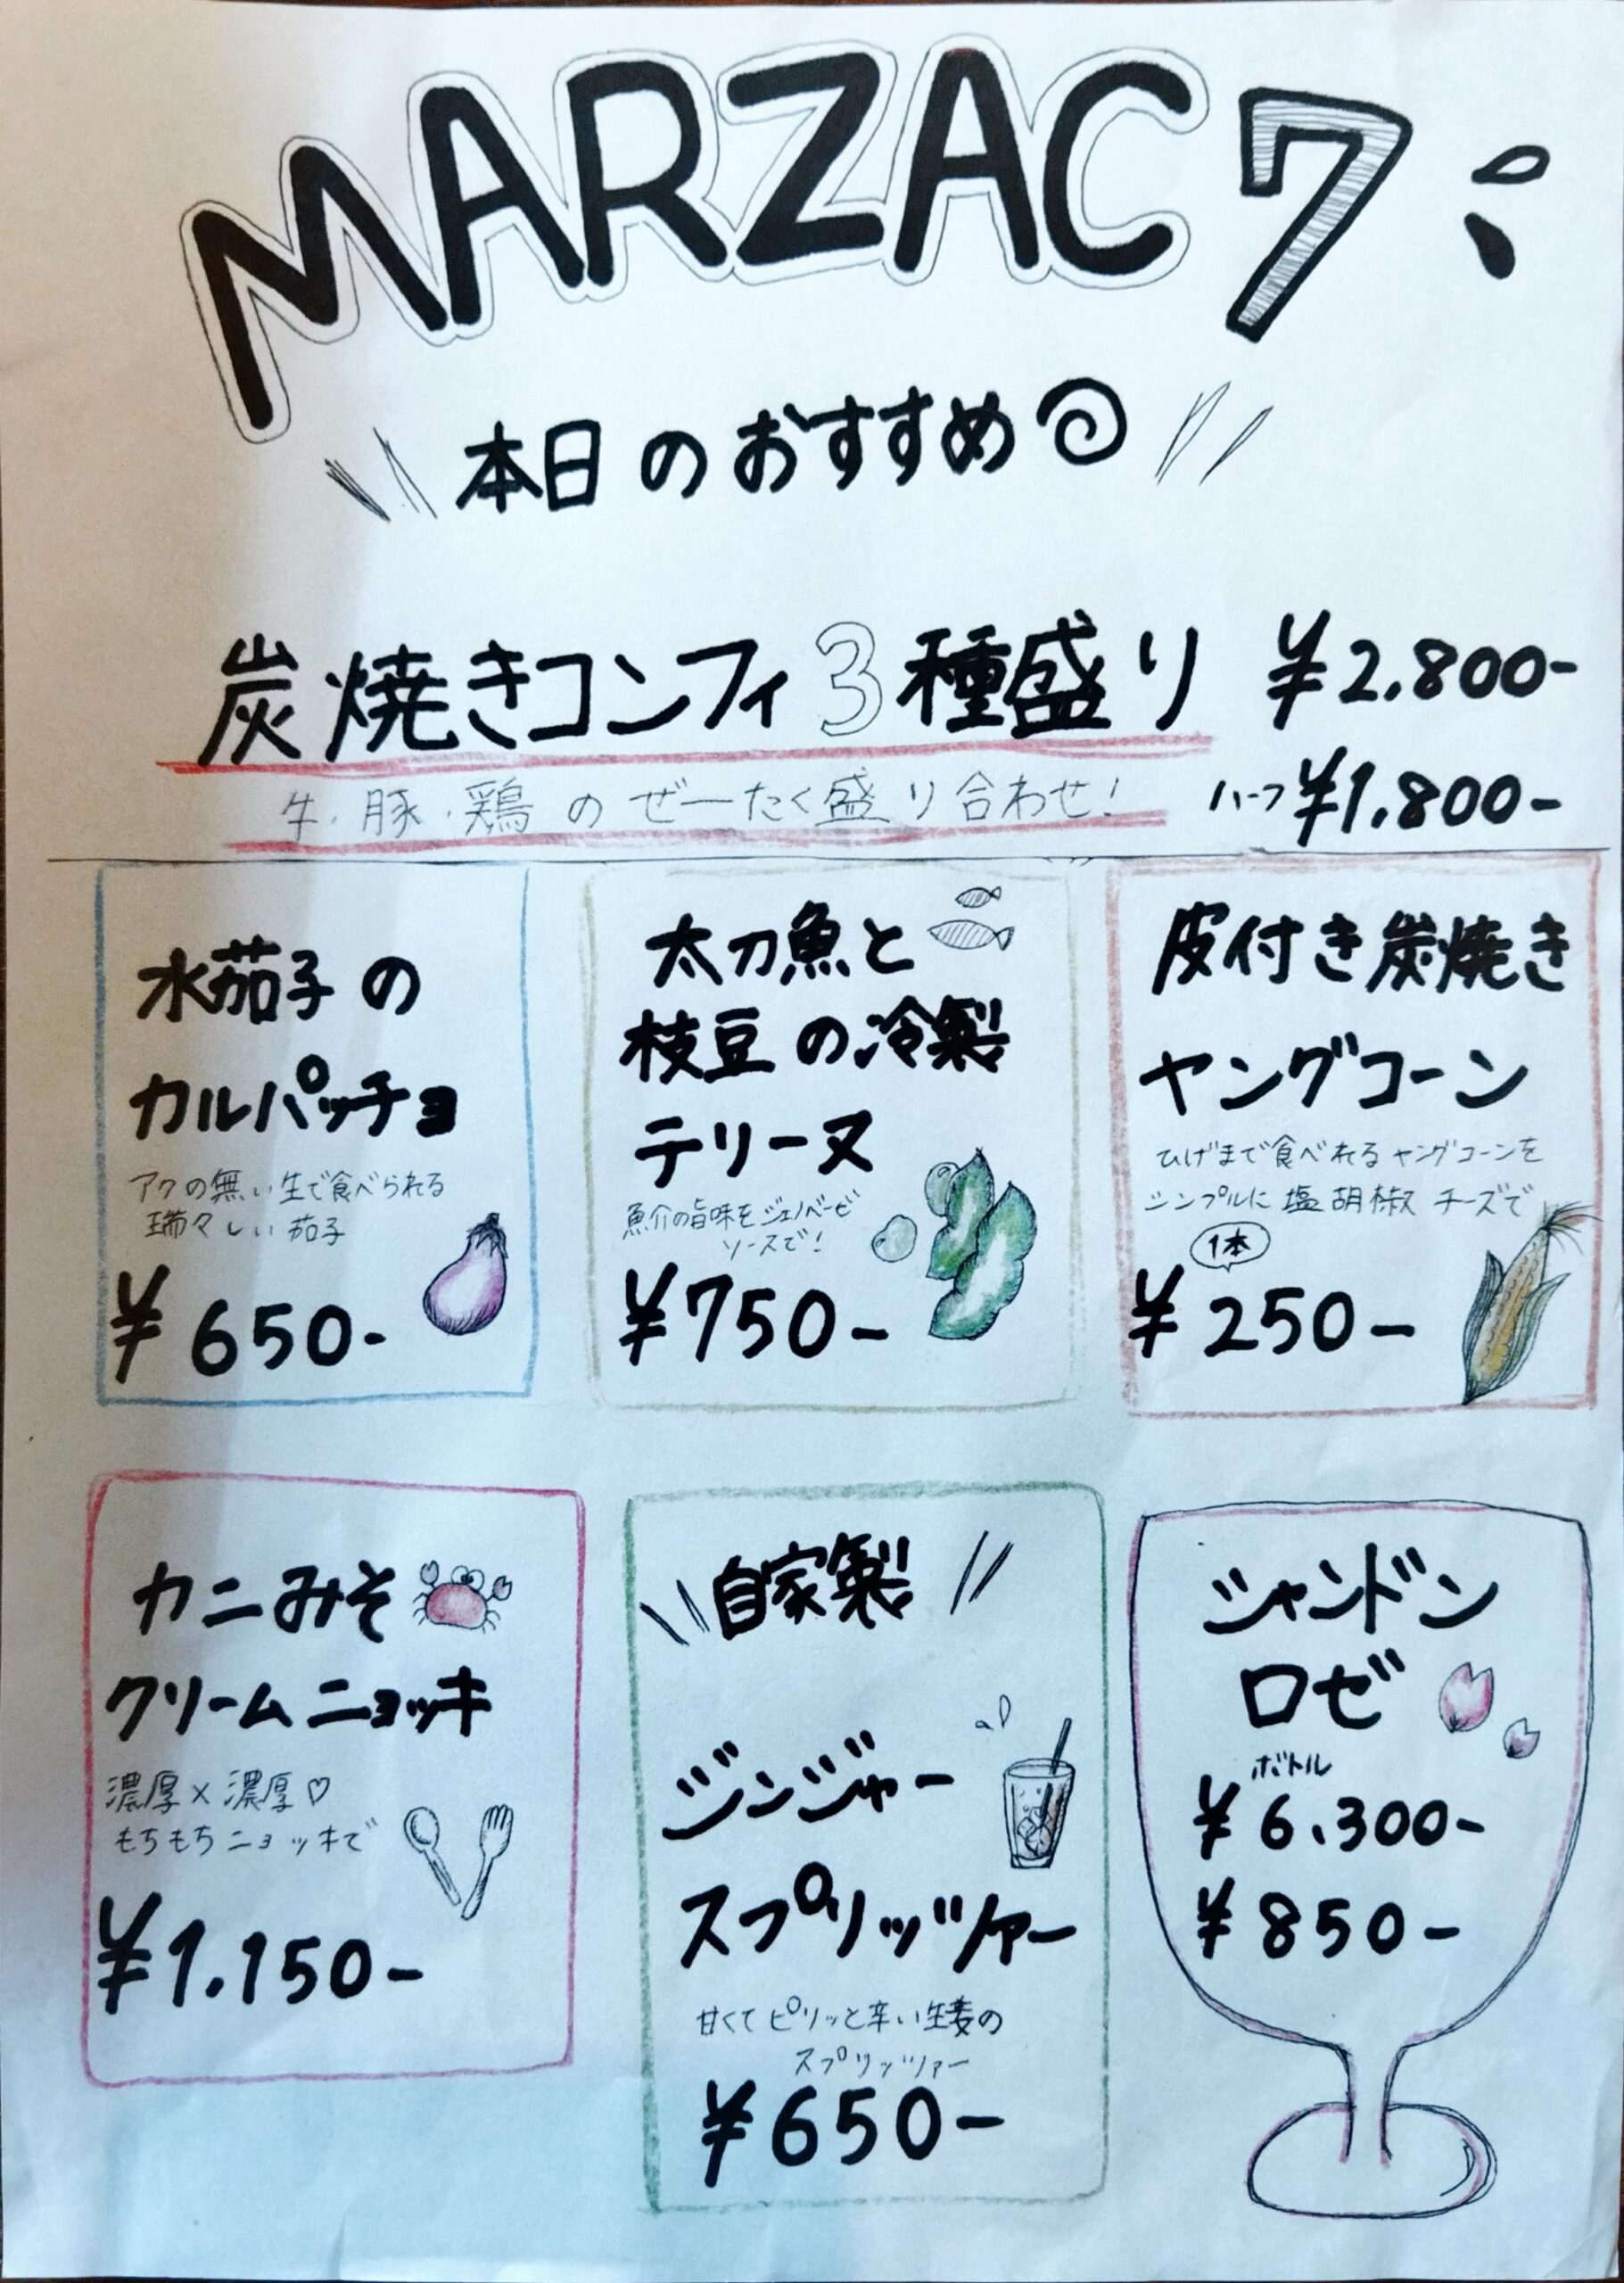 MARZAC7
本日のおすすめ
炭焼きコンフィ3種盛り ¥2.800-
牛・豚・鶏のぜーたく盛り合わせ! ハーフ¥1.800-
水茄子の
カルパッチョ
アクの無い生で食べられる
瑞々しい茄子
¥650-
太刀魚と
枝豆の冷製
テリーヌ
魚介の旨味をジェノベーゼ
ソースで!
¥750-
皮付き炭焼き
ヤングコーン
ひげまで食べれるヤングコーンを
シンプルに塩胡椒チーズで
1本
¥250-
カニみそ
クリームニョッキ
濃厚×濃厚♡
もちもちニョッキで
¥1.150-
自家製
ジンジャー
スプリッツァー
甘くてピリッと辛い生姜の
スプリッツァー
¥650-
シャンドン
ロゼ
ボトル
¥6.300-
¥850-